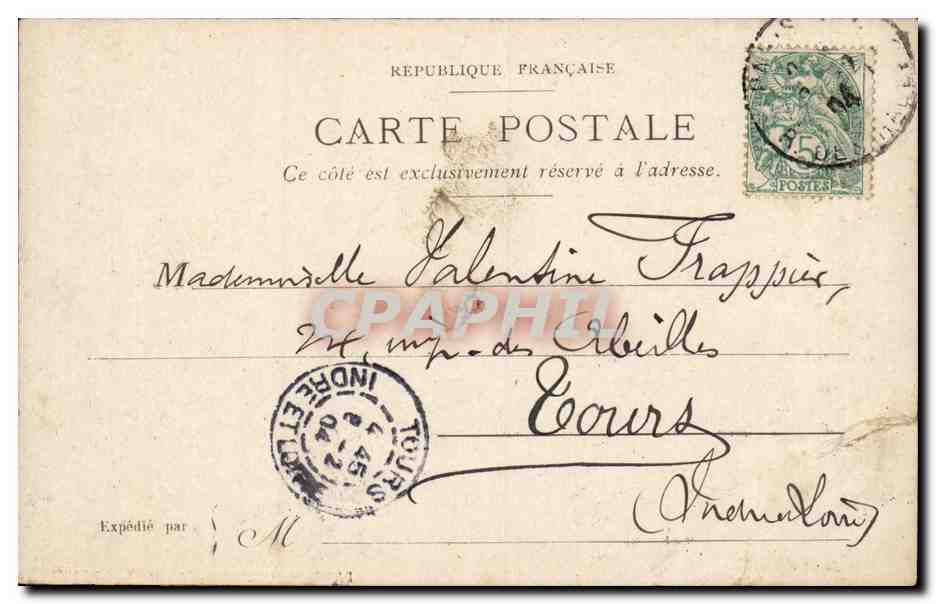 RÉPUBLIQUE FRANÇAISE
CARTE POSTALE
Ce côté est exclusivement réservé à l'adresse.
5
POSTES
04
Mademoiselle Valentine Frappier,
CPAPHIL
24, imp. des Abeilles
Tours
(Indre et Loire)
TOURS
INDRE ET LOIRE
45
04
Expédié par
M